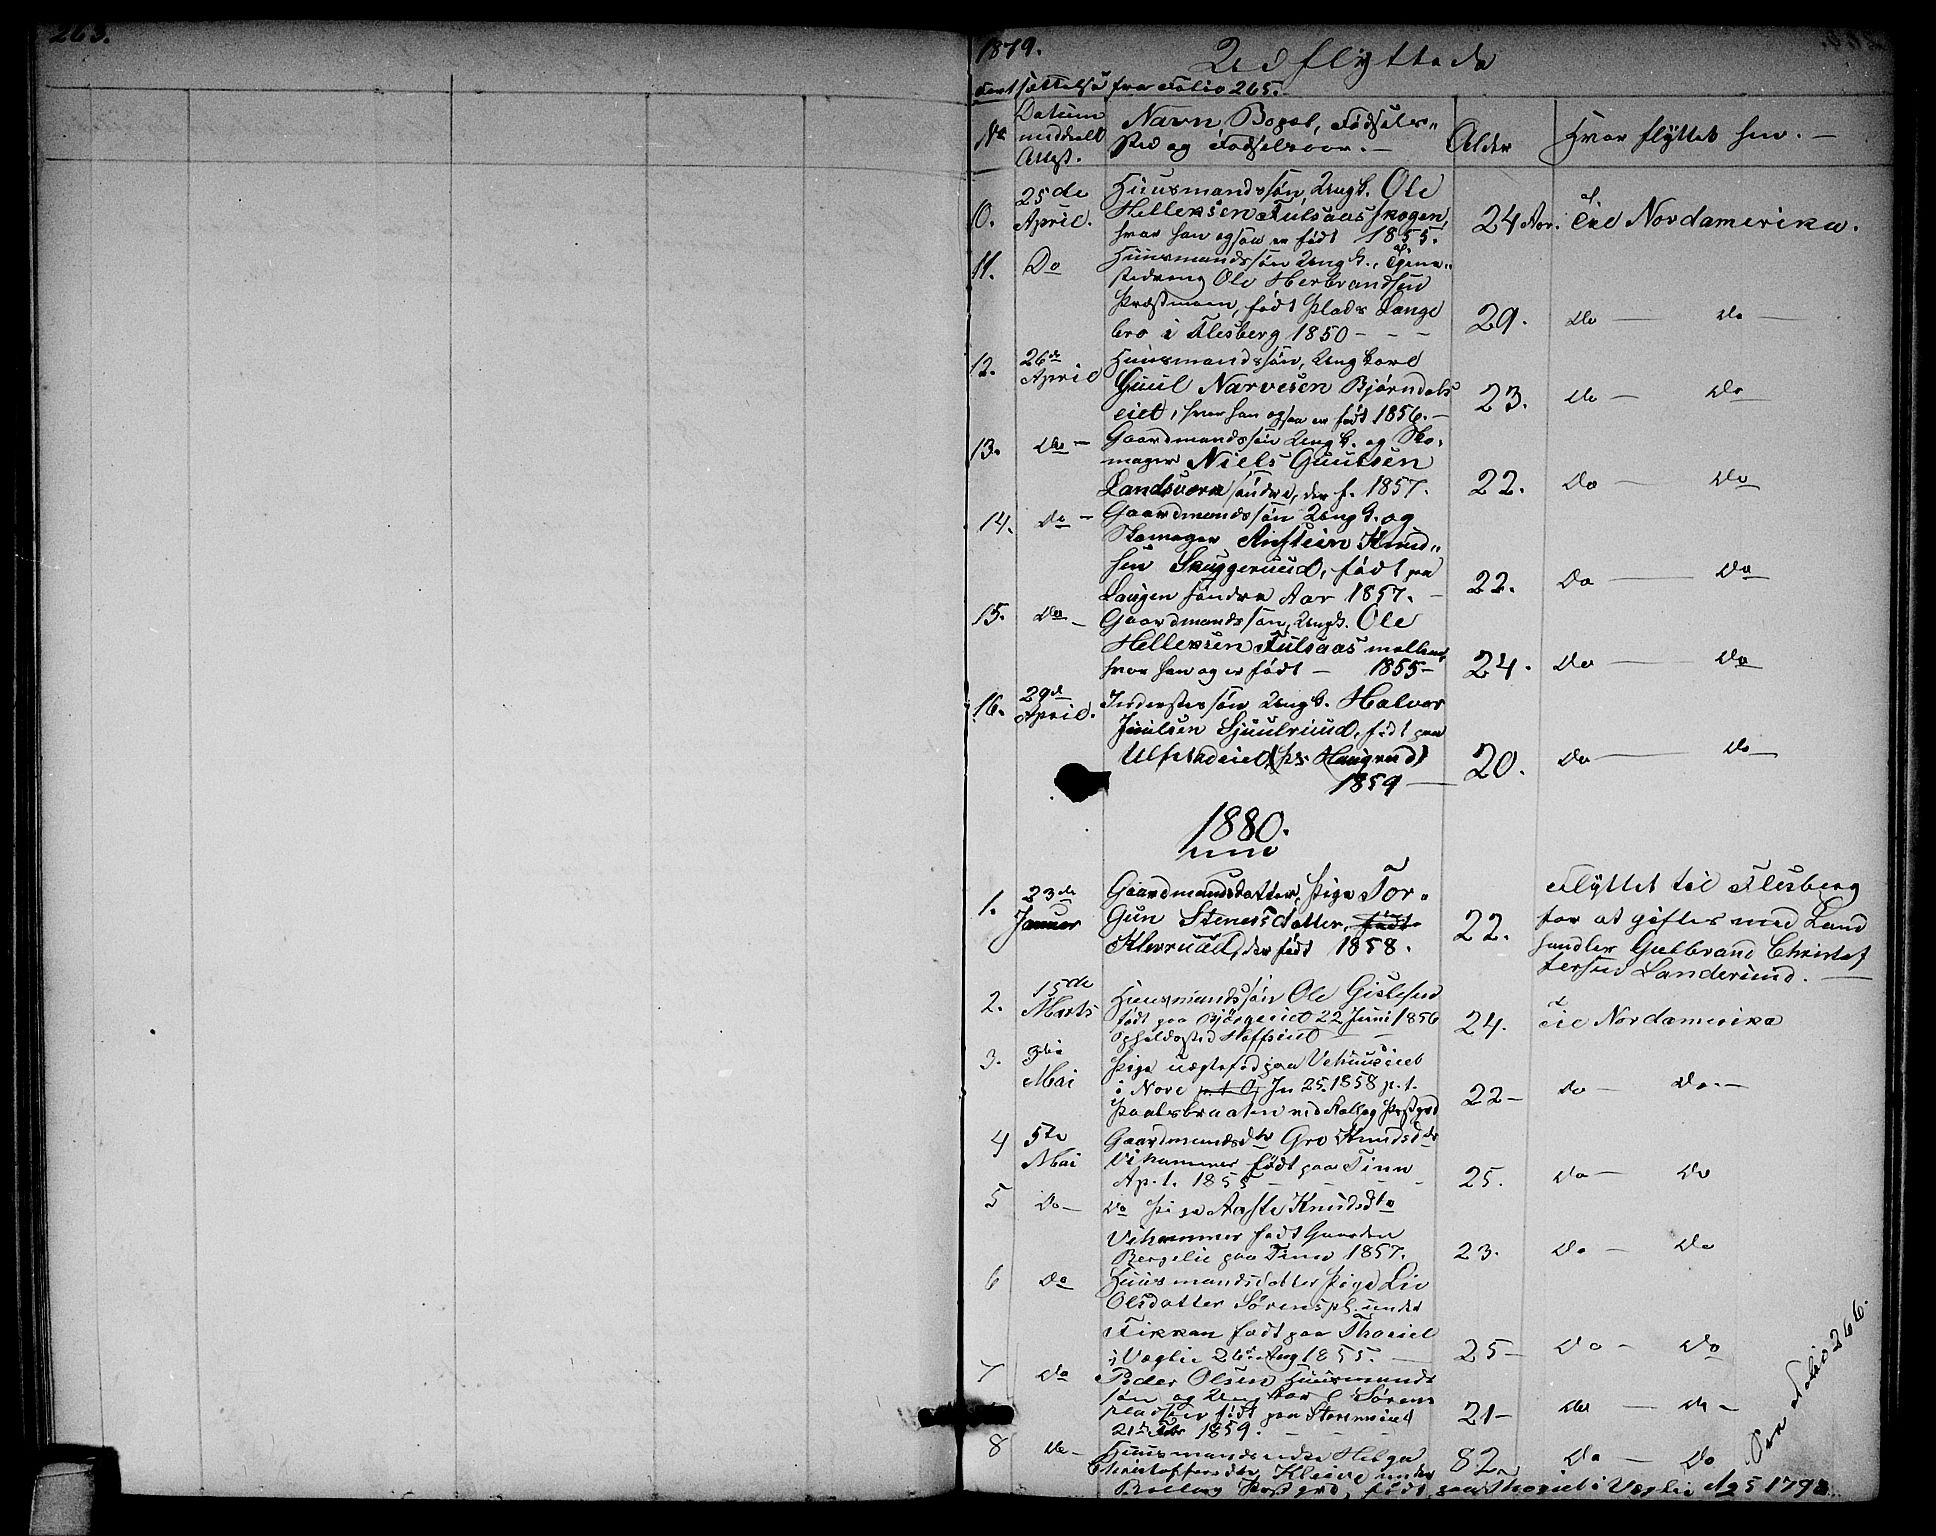 263.
1879.
Udflyttede
Fortsættelse fra Folio 265.
No
Datum
meddelt
Attest.
Navn Bopæl, Fødsels-
sted og Fødselsaar. —
Alder
Hvor flyttet hen. —
10.
25de
April.
Huusmandssøn, Ungk. Ole
Helleksen Fulsaas skogen,
hvor han ogsaa er født 1855.
24 Aar.
Til Nordamerika.
11.
Do
Huusmandssøn Ungk., Tjene-
stedreng Ole Herbrandsen
Præstmoen, født Plads Lange
bro i Flesberg 1850 — — —
29.
Do — Do —
12.
26de
April
Huusmandssøn, Ungkarl
Guul Narvesen Bjørndals
eiet, hvor han ogsaa er født 1856. —
23.
Do — Do
13.
Do —
Gaardmandssøn Ungk. og Sko-
mager Niels Guulsen
Landsværk søndre, der f. 1857.
22.
Do — Do
14.
Do —
Gaardmandssøn Ungk. og
Skomager Anstein Knud-
sen Skuggerud, født paa
Laugen søndre Aar 1857. —
22.
Do — Do
15.
Do —
Gaardmandssøn, Ungk. Ole
Helleksen Fulsaas mellem
hvor han og er født — 1855 —
24.
Do — Do
16.
29de
April.
Inderstessøn Ungk. Halvor
Juulsen Sjuulruud, født paa
Ulfstadeiet (Ps Haugrud)
1859 —
20.
Do — Do
1880.
1.
23de
Januar
Gaardmandsdatter, Pige Tor-
gun Stenersdatter, født
Kleruud, der født 1858.
22.
Flyttet til Flesberg
for at giftes med Land
handler Gulbrand Christof
fersen Landerund. —
2.
15de
Marts
Huusmandssøn Ole Gislesen
født paa Bjørgeeiet 22 Juni 1856
Opholdssted Hoffseiet —
24.
Til Nordamerika
3.
3die
Mai
Pige uægtefød paa Vehuuseiet
i Nore p.t. Jn 25. 1858 p.t.
Paalsbraaten ved Rolleg Prstgrd
22 —
Do — Do. —
4
5te
Mai
Gaardmandsdtr Gro Knudsdtr
Vehammer født paa Tinn
Ap. 1. 1855 — — —
25.
Do — Do
5
Do —
Do Pige Aaste Knudsdtr
Vehammer født Gaarden
Bergelie paa Tinn 1857.
23.
Do — Do
6
Do
Huusmandsdatter Pige Liv
Olsdatter Sørenspl. under
Fikkan født paa Thoeiet
i Væglie 26de Aug 1855. —
25 —
Do — Do
7
Do
Peder Olsen Huusmands
søn og Ungkarl Sørens
pladsen født paa Stenmeiet
21de Febr 1859. — — —
21 —
Do — Do —
8
Do —
Huusmandsenke Helga
Christoffersdtr Kleive under
Rolleg Prstgrd, født paa Thoeiet i Væglie Ag 5 1798
82
Do — Do
Vend Folio 266.